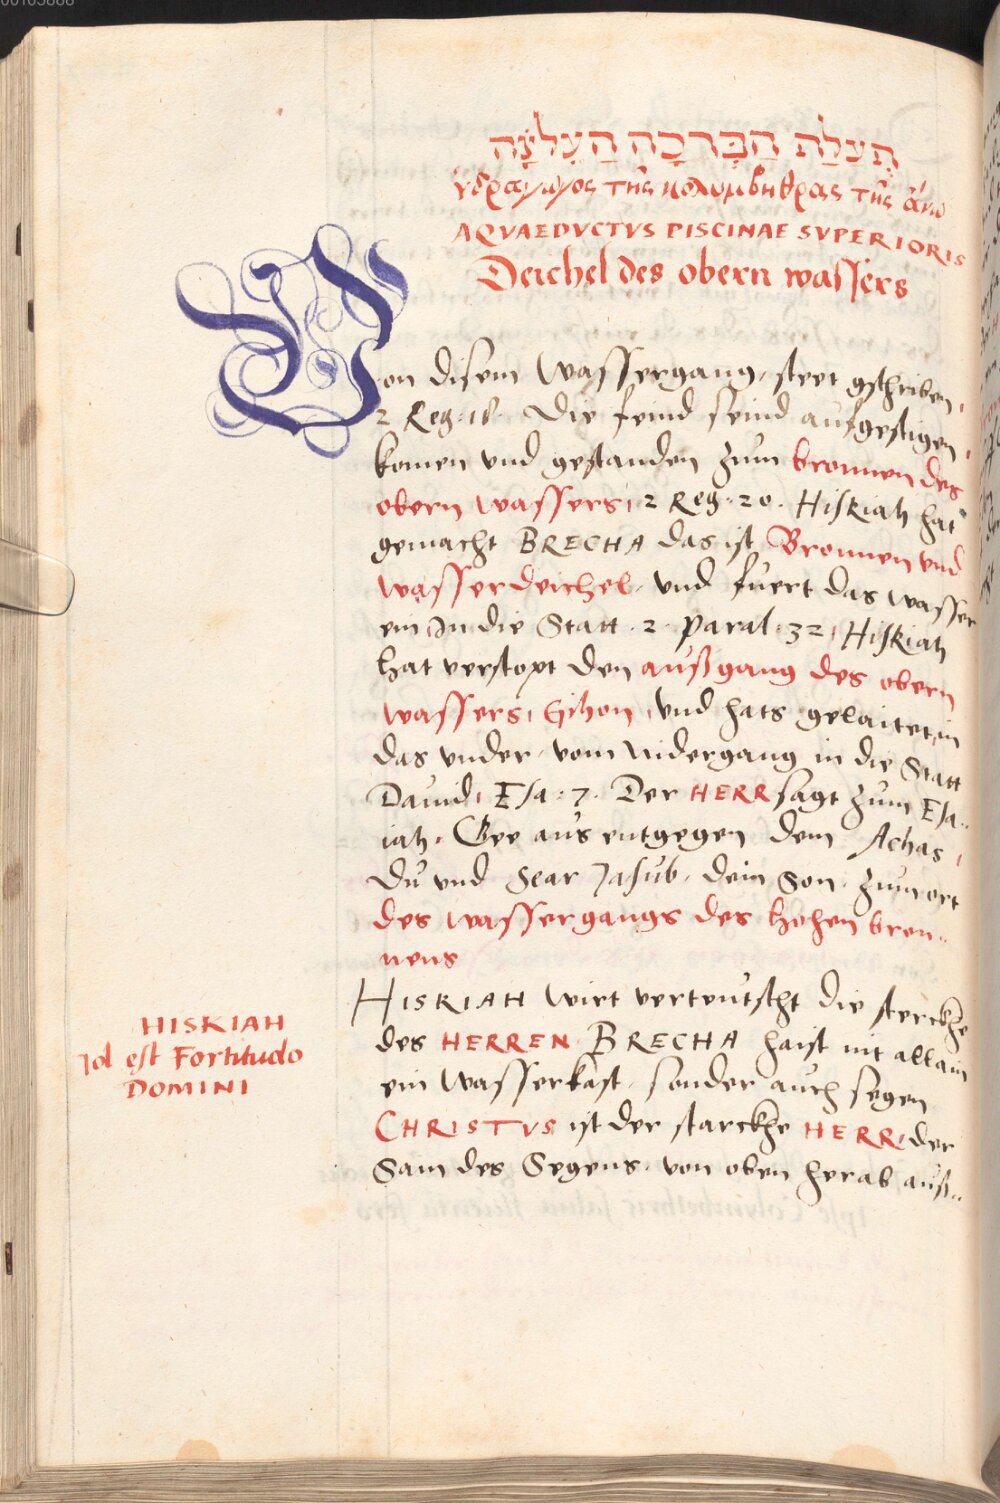 00103888
תְעָלַת הַבְּרֵכָה הָעֶלְיֹנָה
ὑδραγωγος τῆς κολυμβηθρας τῆς ἄνω
AQVAEDVCTVS PISCINAE SVPERIORIS
Deichel des obern wassers
Von disem Wassergang, steet gschriben,
2 Reg. 18. Die feind seind aufgestigen,
komen vnd gestanden zum bronnen des
obern wassers, 2 Reg. 20. Hiskiah hat
gemacht BRECHA das ist Bronnen vnd
wasserdeichel, vnd fuert das wasser
ein, In die Statt. 2. Paral. 32, Hiskiah
hat verstopt den außgang des obern
wassers, Gihon, vnd hats gelaitet, in
das vnder, vom Nidergang in die Statt
Dauid, Esa. 7. Der HERR sagt zum Esa..
iah. Gee aus entgegen dem Achas,
Du vnd Sear Jasub, dein Son, zum ort
des wassergangs des hohen bron..
nens
HISKIAH wirt verteutscht die sterckhe
des HERREN BRECHA haist nit allain
ein Wasserkast, sonder auch segen
CHRISTVS ist der starckhe HERR, der
Sam des Segens, von oben herab auß..
HISKIAH
Id est Fortitudo
DOMINI